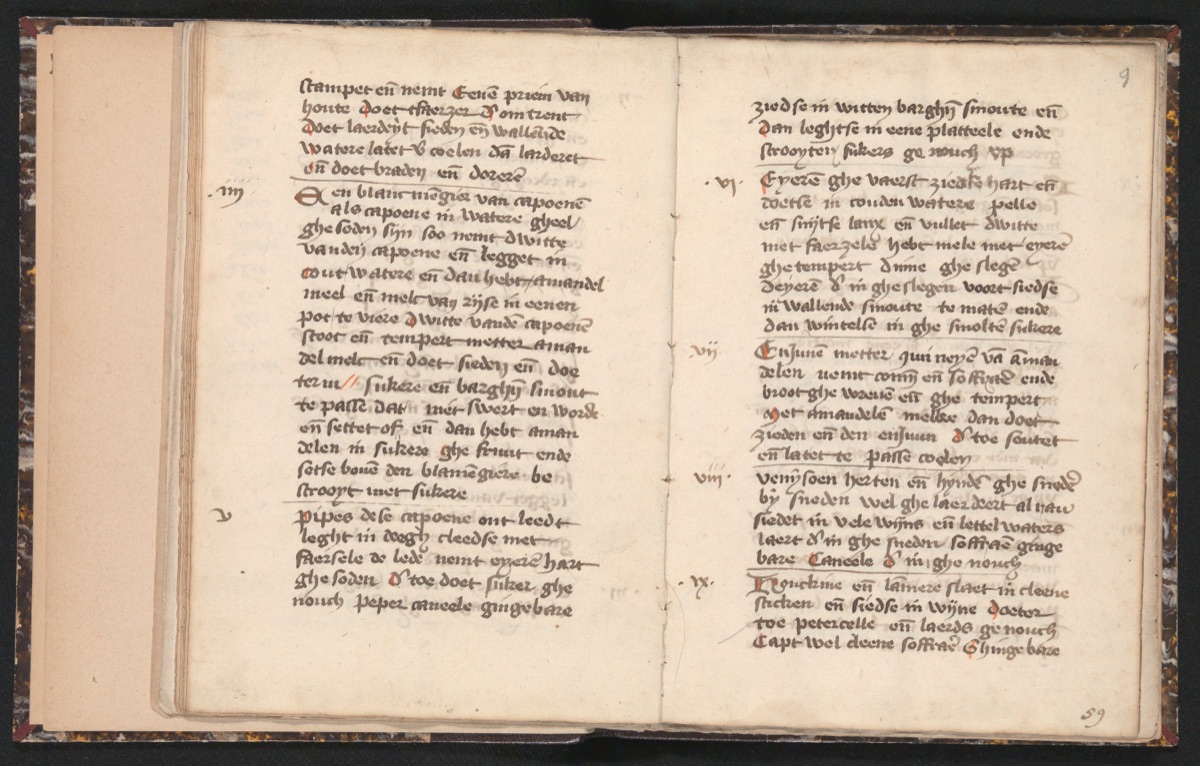 stampet en̄ nemt Eenē priem van
houte doet tfaerzer d' omtrent
doet laerdeyt sieden en̄ wallende
watere latet v coelen dā larderet
en̄ doet braden en̄ dorerē
.iiij. Een blanc mēgier van capoenē
als capoene in watere gheel
ghesoden syn soo nemt dwitte
vanden capoene en̄ legget in
cout watere en̄ dan hebt amandel
meel en̄ melc van ryse in eenen
pot te viere dwitte vandē capoenē
stoot en̄ tempert metter aman
del melc en̄ doet sieden en̄ doe
ter in // sukere en̄ barghȳ smout
te passē dat niet swert en worde
en̄ settet of en̄ dan hebt aman
delen in sukere ghe fruut ende
setse bouē den blamēgiere be
strooyt met sukere
v pipes dese capoene ont leedt
leght in deegh cleedse met
faersele de ledē nemt eyerē hart
ghesoden d' toe doet suker ghe
nouch peper caneele gingebare
9
ziedse in witten barghȳ smoute en̄
dan leghtse in eene platteele ende
strooyter sukers ge nouch up
.vi. Eyerē ghe vaerst ziedse hart en̄
doetse in couden watere pelle
en̄ snytse lanx en̄ vullet dwitte
met faerzele hebt mele met eyerē
ghetempert dinne ghe slegē
deyerē d' in gheslegen voort siedse
in wallende smoute te matē ende
dan wintelse in ghe smoltē sukere
vij Enjuuē metter quineyē vā āman
delen nemt comȳ en̄ soffraē ende
broot ghe wreuē en̄ ghe tempert
Met amandelē melke dan doet
zieden en̄ den enjuun d' toe soutet
en̄ latet te passē coelen
viij. venysoen herten en̄ hyndē ghe snedē
by sneden wel ghe laerdeert al rau
siedet in vele wyns en̄ lettel waters
laert d' in ghe sneden soffraē ginge
bare Caneele d' in ghe nouch
.ix. Houckine en̄ lāmere slaet in cleene
sticken en̄ siedse in wyne doeter
toe petercelle en̄ laerds ge nouch
Capt wel cleene soffraē Ghingebare
59